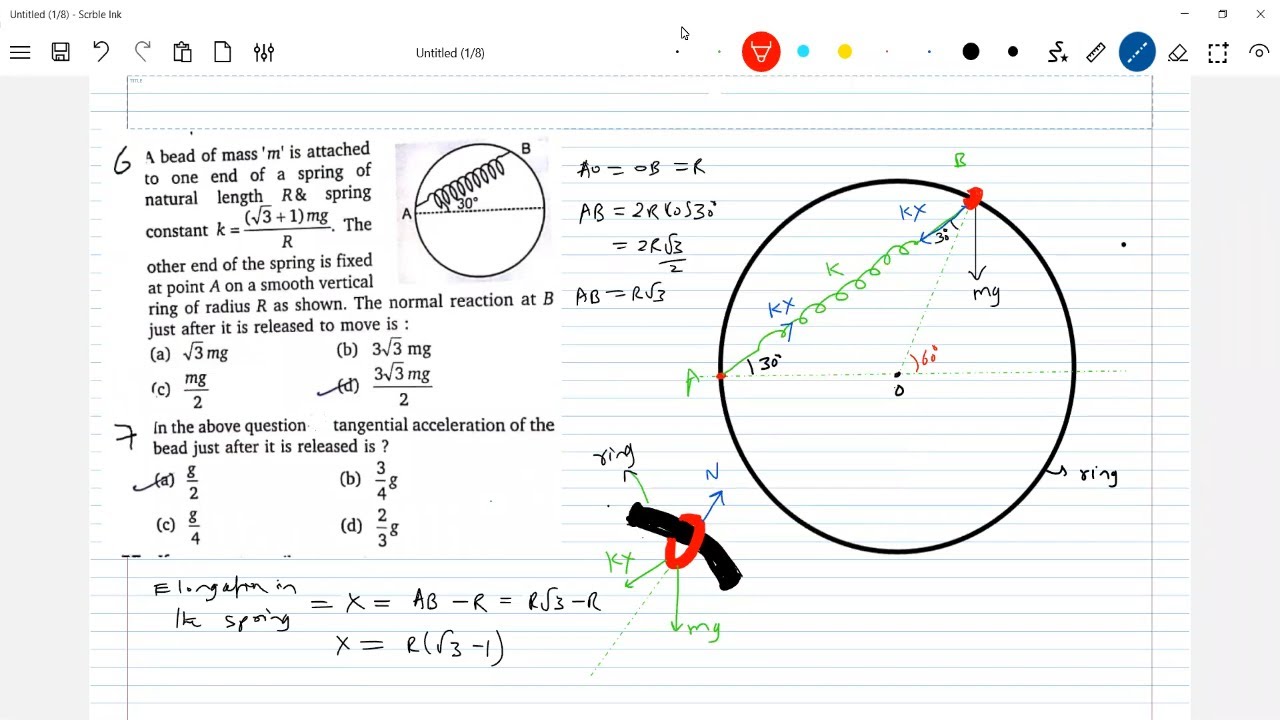 Untitled (1/8) - Scrble Ink
Untitled (1/8)
TITLE
6 A bead of mass 'm' is attached
to one end of a spring of
natural length R& spring
constant k = (√3 + 1) mg / R . The
other end of the spring is fixed
at point A on a smooth vertical
ring of radius R as shown. The normal reaction at B
just after it is released to move is :
(a) √3 mg
(b) 3√3 mg
(c) mg / 2
(d) 3√3 mg / 2
A
B
30°
7 In the above question tangential acceleration of the
bead just after it is released is ?
(a) g / 2
(b) 3 / 4 g
(c) g / 4
(d) 2 / 3 g
AO = OB = R
AB = 2R cos30°
= 2R√3 / 2
AB = R√3
B
KX
30°
K
mg
KX
30°
60°
A
O
ring
ring
N
KX
mg
Elongation in
the spring = X = AB - R = R√3 - R
X = R(√3 - 1)